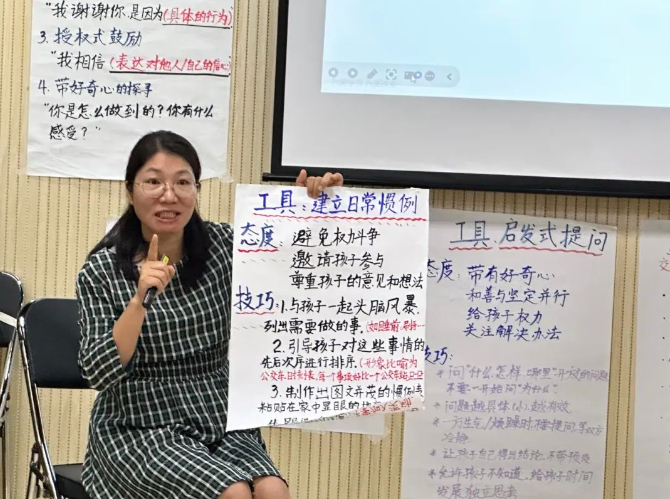 "我谢谢你,是因为(具体的行为)
3. 授权式鼓励
"我相信(表达对他人/自己的信心)
4. 带好奇心的探寻
"你是怎么做到的?你有什么
感受?"
工具:建立日常惯例
态度:避免权力斗争
邀请孩子参与
尊重孩子的意见和想法
技巧:1.与孩子一起头脑风暴,
列出需要做的事.
2.引导孩子对这些事情的
先后次序进行排序.(形象比喻为
3.制作出图文并茂的惯例表
粘贴在家中显眼的
工具:启发式提问
态度:带有好奇心
和善与坚定并行
给孩子权力
关注解决办法
技巧:
问"什么,怎样,哪里"开头的问题
不要一开始问"为什么"
问题越具体(小)越有效
冷静
让孩子自己得出结论,不带预设
允许孩子不知道,给孩子时间
发展独立思